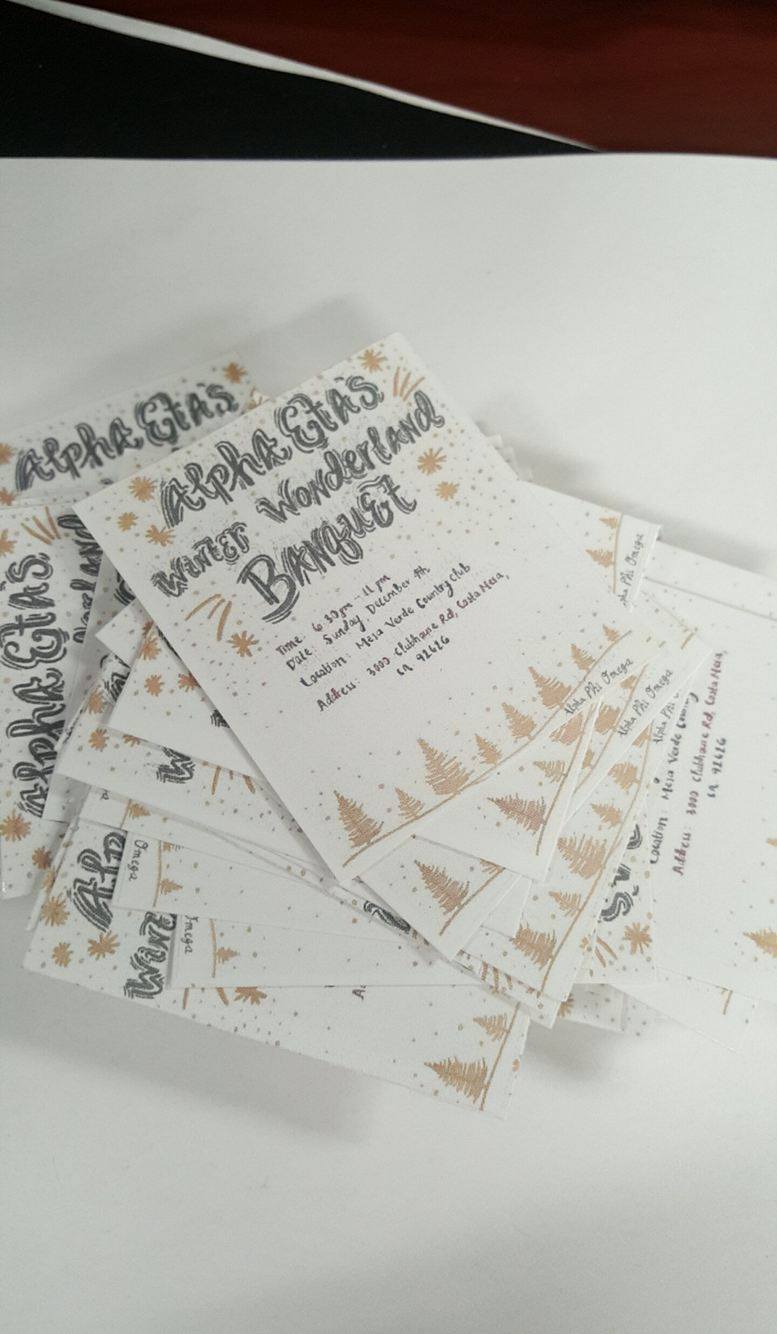 Alpha Eta's
Winter Wonderland
Banquet
Time: 6:30pm - 11pm
Date: Sunday, December 9th
Location: Mesa Verde Country Club
Address: 3000 Clubhouse Rd, Costa Mesa,
CA 92626
Alpha Phi Omega
Alpha Eta's
Alpha Eta's
Alpha Phi Omega
Alpha Phi Omega
Location: Mesa Verde
Address: 3000 Clubhouse Rd, Costa Mesa,
CA 92626
Omega
Omega